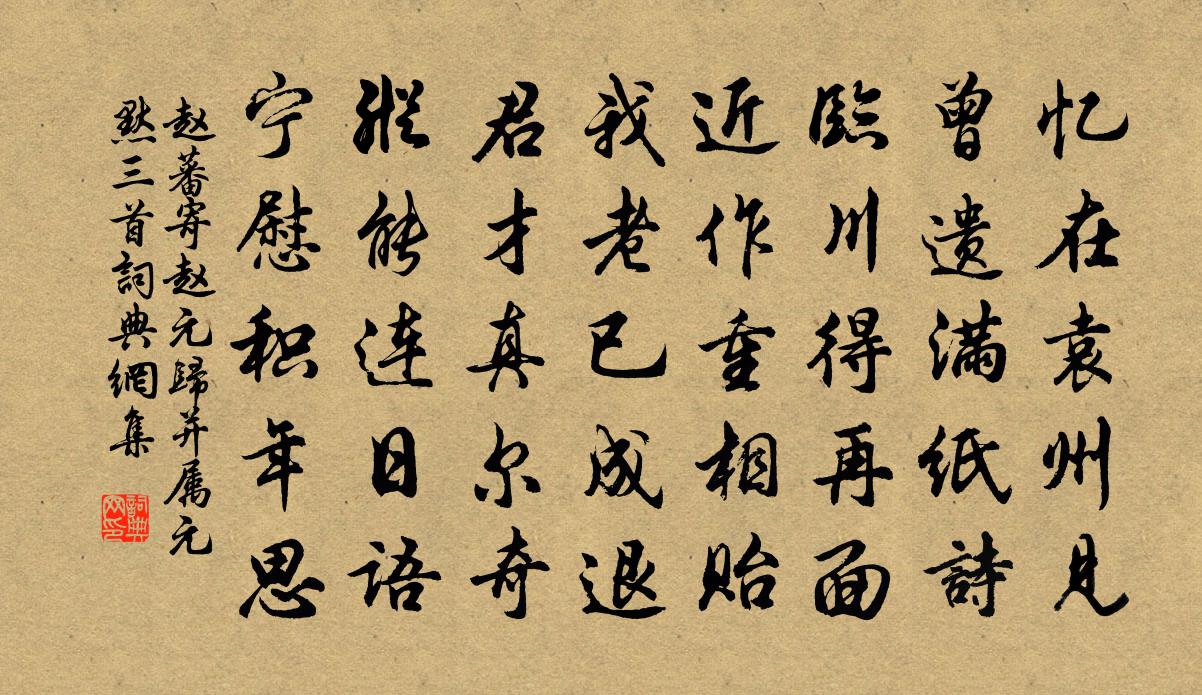 忆在袁州见
曾遗满纸詩
臨川得再面
近作重相贻
我老已成退
君才真尔奇
縱能连日语
宁慰积年思
赵蕃寄赵元歸并属元
默三首詞典網集
詞典
网印